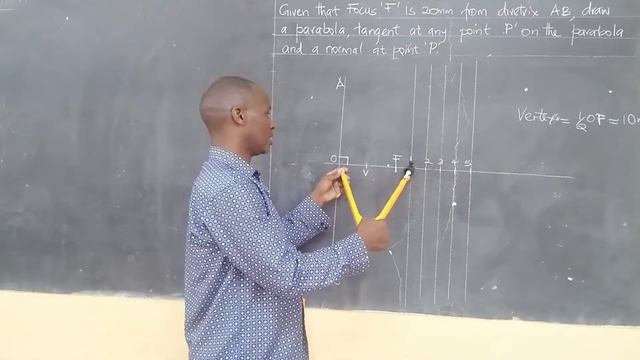 Given that Focus 'F' is 20mm from diretrix AB, draw
a parabola, tangent at any point 'P' on the parabola
and a normal at point 'P'.
A
Vertex = ½OF = 10m
O V F 2 3 4 5